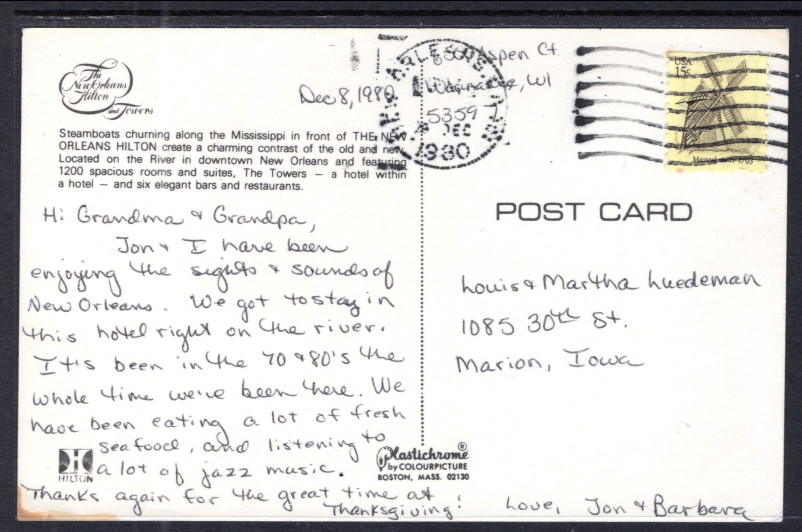 The
New Orleans
Hilton
and Towers
Dec 8, 1980
Aspen Ct.
WI
DEC
1980
USA
15c
Steamboats churning along the Mississippi in front of THE NEW
ORLEANS HILTON create a charming contrast of the old and new.
Located on the River in downtown New Orleans and featuring
1200 spacious rooms and suites, The Towers — a hotel within
a hotel — and six elegant bars and restaurants.
Hi Grandma & Grandpa,
Jon & I have been
enjoying the sights & sounds of
New Orleans. We got to stay in
this hotel right on the river.
It's been in the 70 & 80's the
whole time we've been here. We
have been eating a lot of fresh
seafood, and listening to
a lot of jazz music.
Thanks again for the great time at
Thanksgiving!
Love, Jon & Barbara
HILTON
Plastichrome®
by COLOURPICTURE
BOSTON, MASS. 02130
POST CARD
Louis & Martha Luedeman
1085 30th St.
Marion, Iowa